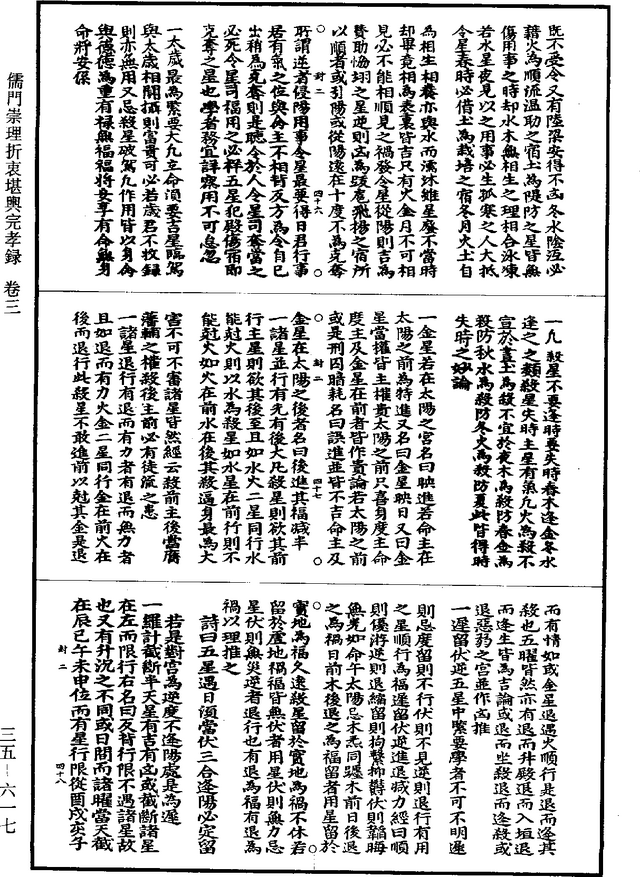 既不受令又有陞梁安得不凶冬水陰沍必
藉火為順流溫助之宿土為隄防之星皆無
傷用事之時却水木無相生之理相合泳凍
若水星夜見以之用事必生孤寒之人大抵
令星春時必借土為栽培之宿冬月火土自
為相生相養亦與水而濡沐雖星廢不當時
却畢竟相為表裏皆吉只有火金月不可相
見必不能相順見之禍發令星從陽則吉為
贊助恊翊之星逆則凶為跋扈飛揚之宿所
以順者或引陽或從陽遠在十度不為克奪
所謂逆者侵陽用事令星最要得日君行事
居有氣之位與命主不相背反方為令自已
出稍為克奪則是聴令於人令星司奪當之
必死令星司福用之必祥五星犯殺傷宿即
克奪之星也學者務宜詳察用不可忽忽
一太歲最為緊要大凢立命須要吉星臨駕
與太歲相關攝則富貴可必若歲君不收録
則亦無用又忌殺星破駕凢作用皆以身命
與德德為重有祿無福福將安享有命無身
命將安保
一凢殺星不要逢時要失時春木逢金冬水
逢火之類殺星失時主星有氣凢火為殺不
宜於晝土為殺不宜於夜木為殺防春金為
殺防秋水為殺防冬火為殺防夏此皆得時
失時之妙論
一金星若在太陽之宮名曰映進若命主在
太陽之前為特進又名曰金星映日又曰金
星當權皆主權貴太陽之前只喜身度主命
度主及金星在前者皆作貴論若太陽之前
或是刑囚暗耗名曰誤進並皆不吉命主及
金星在太陽之後者名曰後進其福減半
一諸星並行有先有後大凡殺星則欲其前
行主星則欲其後至且如水火二星同行水
能尅火則以水為殺星如水星在前行則不
能尅火如火在前水在後其殺逼身最為大
害不可不審諸星皆然經云殺前主後當膺
藩輔之權殺後主前必有徒流之患
一諸星退行有退而有力者有退而無力者
且如退而有力火金二星同行金在前火在
後而退行此殺星不敢進前以尅其金是退
而有情如或金星退遇火順行是退而逢其
殺也五曜皆然亦有退而升殿退而入垣退
而逢生皆為吉論或退而坐殺退而逢殺或
退惡弱之宮並作凶推
一遲留伏逆五星中緊要學者不可不明遲
則忌度留則不行伏則不見逆則退行有用
之星順行為福逢留伏逆進退減力經曰順
則優游逆則退縮留則拘繫抑鬱伏則韜晦
無光如命午太陽忌木炁同躔木前日後退
之為禍日前木後退之為福留者用星留於
實地為福久遠殺星留於實地為禍不休若
留於虛地禍福皆無伏者用星伏則無力忌
星伏則無災逆者退行也有退為福有退為
禍以理推之
詩曰五星遇日須當伏三合逢陽必定留
若是對宮為逆度不逢陽處是為遲
一羅計截斷半天星有吉有凶或截斷諸星
在左而限行右名曰反背行限不遇諸星故
也又有升沉之不同或日間而諸曜當天截
在辰巳午未申位而有星行限從酉戌亥子
封二 四十六
封二 四十七
封二 四十八
儒門崇理折衷堪輿完孝録 卷三
三五-六一七